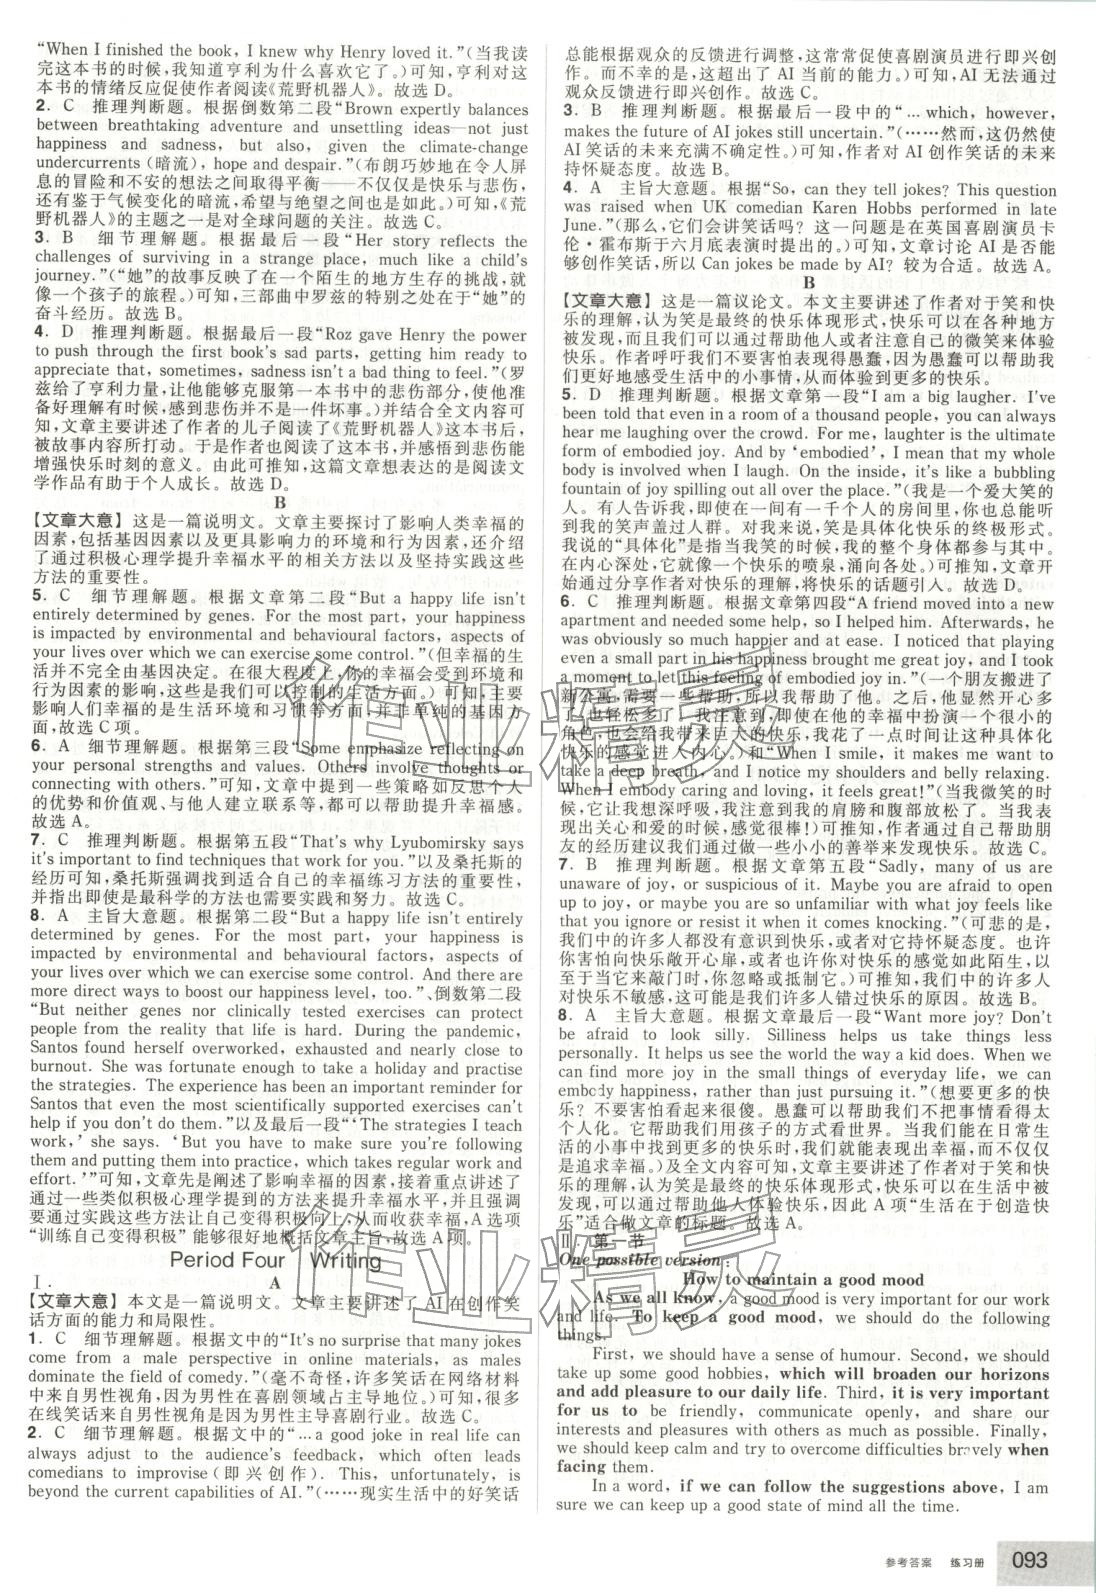 “When I finished the book, I knew why Henry loved it.”(当我读
完这本书的时候,我知道亨利为什么喜欢它了。)可知,亨利对这
本书的情绪反应促使作者阅读《荒野机器人》。故选 D。
2. C 推理判断题。根据倒数第二段“Brown expertly balances
between breathtaking adventure and unsettling ideas—not just
happiness and sadness, but also, given the climate-change
undercurrents (暗流), hope and despair.”(布朗巧妙地在令人屏
息的冒险和不安的想法之间取得平衡——不仅仅是快乐与悲伤,
还有鉴于气候变化的暗流,希望与绝望之间也是如此。)可知,《荒
野机器人》的主题之一是对全球问题的关注。故选 C。
3. B 细节理解题。根据最后一段“Her story reflects the
challenges of surviving in a strange place, much like a child's
journey.”(“她”的故事反映了在一个陌生的地方生存的挑战,就
像一个孩子的旅程。)可知,三部曲中罗兹的特别之处在于“她”的
奋斗经历。故选 B。
4. D 推理判断题。根据最后一段“Roz gave Henry the power
to push through the first book's sad parts, getting him ready to
appreciate that, sometimes, sadness isn't a bad thing to feel.”(罗
兹给了亨利力量,让他能够克服第一本书中的悲伤部分,使他准
备好理解有时候,感到悲伤并不是一件坏事。)并结合全文内容可
知,文章主要讲述了作者的儿子阅读了《荒野机器人》这本书后,
被故事内容所打动。于是作者也阅读了这本书,并感悟到悲伤能
增强快乐时刻的意义。由此可推知,这篇文章想表达的是阅读文
学作品有助于个人成长。故选 D。
B
【文章大意】 这是一篇说明文。文章主要探讨了影响人类幸福的
因素,包括基因因素以及更具影响力的环境和行为因素,还介绍
了通过积极心理学提升幸福水平的相关方法以及坚持实践这些
方法的重要性。
5. C 细节理解题。根据文章第二段“But a happy life isn't
entirely determined by genes. For the most part, your happiness
is impacted by environmental and behavioural factors, aspects of
your lives over which we can exercise some control.”(但幸福的生
活并不完全由基因决定。在很大程度上,你的幸福会受到环境和
行为因素的影响,这些是我们可以控制的生活方面。)可知,主要
影响人们幸福的是生活环境和习惯等方面,并非单纯的基因方
面,故选 C 项。
6. A 细节理解题。根据第三段“Some emphasize reflecting on
your personal strengths and values. Others involve thoughts or
connecting with others.”可知,文章中提到一些策略如反思个人
的优势和价值观、与他人建立联系等,都可以帮助提升幸福感。
故选 A。
7. C 推理判断题。根据第五段“That's why Lyubomirsky says
it's important to find techniques that work for you.”以及桑托斯的
经历可知,桑托斯强调找到适合自己的幸福练习方法的重要性,
并指出即使是最科学的方法也需要实践和努力。故选 C。
8. A 主旨大意题。根据第二段“But a happy life isn't entirely
determined by genes. For the most part, your happiness is
impacted by environmental and behavioural factors, aspects of
your lives over which we can exercise some control. And there are
more direct ways to boost our happiness level, too.”、倒数第二段
“But neither genes nor clinically tested exercises can protect
people from the reality that life is hard. During the pandemic,
Santos found herself overworked, exhausted and nearly close to
burnout. She was fortunate enough to take a holiday and practise
the strategies. The experience has been an important reminder for
Santos that even the most scientifically supported exercises can't
help if you don't do them.”以及最后一段“‘The strategies I teach
work,’ she says. ‘But you have to make sure you're following
them and putting them into practice, which takes regular work and
effort.’”可知,文章先是阐述了影响幸福的因素,接着重点讲述了
通过一些类似积极心理学提到的方法来提升幸福水平,并且强调
要通过实践这些方法让自己变得积极向上,从而收获幸福,A 选项
“训练自己变得积极” 能够很好地概括文章主旨,故选 A 项。
Period Four Writing
Ⅰ.
A
【文章大意】 本文是一篇说明文。文章主要讲述了 AI 在创作笑
话方面的能力和局限性。
1. C 细节理解题。根据文中的“It's no surprise that many jokes
come from a male perspective in online materials, as males
dominate the field of comedy.”(毫不奇怪,许多笑话在网络材料
中来自男性视角,因为男性在喜剧领域占主导地位。)可知,很多
在线笑话来自男性视角是因为男性主导喜剧行业。故选 C。
2. C 细节理解题。根据文中的“... a good joke in real life can
always adjust to the audience's feedback, which often leads
comedians to improvise (即兴创作). This, unfortunately, is
beyond the current capabilities of AI.”(……现实生活中的好笑话
总能根据观众的反馈进行调整,这常常促使喜剧演员进行即兴创
作。而不幸的是,这超出了 AI 当前的能力。)可知,AI 无法通过
观众反馈进行即兴创作。故选 C。
3. B 推理判断题。根据最后一段中的“... which, however,
makes the future of AI jokes still uncertain.”(……然而,这仍然使
AI 笑话的未来充满不确定性。)可知,作者对 AI 创作笑话的未来
持怀疑态度。故选 B。
4. A 主旨大意题。根据“So, can they tell jokes? This question
was raised when UK comedian Karen Hobbs performed in late
June.”(那么,它们会讲笑话吗? 这一问题是在英国喜剧演员卡
伦·霍布斯于六月底表演时提出的。)可知,文章讨论 AI 是否能
够创作笑话,所以 Can jokes be made by AI? 较为合适。故选 A。
B
【文章大意】 这是一篇议论文。本文主要讲述了作者对于笑和快
乐的理解,认为笑是最终的快乐体现形式,快乐可以在各种地方
被发现,而且我们可以通过帮助他人或者注意自己的微笑来体验
快乐。作者呼吁我们不要害怕表现得愚蠢,因为愚蠢可以帮助我
们更好地感受生活中的小事情,从而体验到更多的快乐。
5. D 推理判断题。根据文章第一段“I am a big laugher. I've
been told that even in a room of a thousand people, you can always
hear me laughing over the crowd. For me, laughter is the ultimate
form of embodied joy. And by ‘embodied’, I mean that my whole
body is involved when I laugh. On the inside, it's like a bubbling
fountain of joy spilling out all over the place.”(我是一个爱大笑的
人。有人告诉我,即使在一间有一千个人的房间里,你也总能听
到我的笑声盖过人群。对我来说,笑是具体化快乐的终极形式。
我说的“具体化”是指当我笑的时候,我的整个身体都参与其中。
在内心深处,它就像一个快乐的喷泉,涌向各处。)可知,文章开
始通过分享作者对快乐的理解,将快乐的话题引入。故选 D。
6. C 推理判断题。根据文章第四段“A friend moved into a new
apartment and needed some help, so I helped him. Afterwards, he
was obviously so much happier and at ease. I noticed that playing
even a small part in his happiness brought me great joy, and I took
a moment to let this feeling of embodied joy in.”(一个朋友搬进了
新公寓,需要一些帮助,所以我帮助了他。之后,他显然开心多
了,也轻松多了。我注意到,即使在他的幸福中扮演一个很小的
角色,也会给我带来巨大的快乐,我花了一点时间让这种具体化
快乐的感觉进入内心。)和“When I smile, it makes me want to
take a deep breath, and I notice my shoulders and belly relaxing.
When I embody caring and loving, it feels great!”(当我微笑的时
候,它让我想深呼吸,我注意到我的肩膀和腹部放松了。当我表
现出关心和爱的时候,感觉很棒!)可推知,作者通过自己帮助朋
友的经历建议我们通过做一些小小的善举来发现快乐。故选 C。
7. B 推理判断题。根据文章第五段“Sadly, many of us are
unaware of joy, or suspicious of it. Maybe you are afraid to open
up to joy, or maybe you are so unfamiliar with what joy feels like
that you ignore or resist it when it comes knocking.”(可悲的是,
我们中的许多人都没有意识到快乐,或者对它持怀疑态度。也许
你害怕向快乐敞开心扉,或者也许你对快乐的感觉如此陌生,以
至于当它来敲门时,你忽略或抵制它。)可推知,我们中的许多人
对快乐不敏感,这可能是我们许多人错过快乐的原因。故选 B。
8. A 主旨大意题。根据文章最后一段“Want more joy? Don't
be afraid to look silly. Silliness helps us take things less
personally. It helps us see the world the way a kid does. When we
can find more joy in the small things of everyday life, we can
embody happiness, rather than just pursuing it.”(想要更多的快
乐? 不要害怕看起来很傻。愚蠢可以帮助我们不把事情看得太
个人化。它帮助我们用孩子的方式看世界。当我们能在日常生
活的小事中找到更多的快乐时,我们就能表现出幸福,而不仅仅
是追求幸福。)及全文内容可知,文章主要讲述了作者对于笑和快
乐的理解,认为笑是最终的快乐体现形式,快乐可以在生活中被
发现,又可以通过帮助他人体验到更多的快乐,因此 A 项“生活在于创造快
乐”适合做文章的标题。故选 A。
Ⅱ. 第一节
One possible version:
How to maintain a good mood
As we all know, a good mood is very important for our work
and life. To keep a good mood, we should do the following
things.
First, we should have a sense of humour. Second, we should
take up some good hobbies, which will broaden our horizons
and add pleasure to our daily life. Third, it is very important
for us to be friendly, communicate openly, and share our
interests and pleasures with others as much as possible. Finally,
we should keep calm and try to overcome difficulties bravely when
facing them.
In a word, if we can follow the suggestions above, I am
sure we can keep up a good state of mind all the time.
作业精灵
作业精灵
参考答案 练习册 093